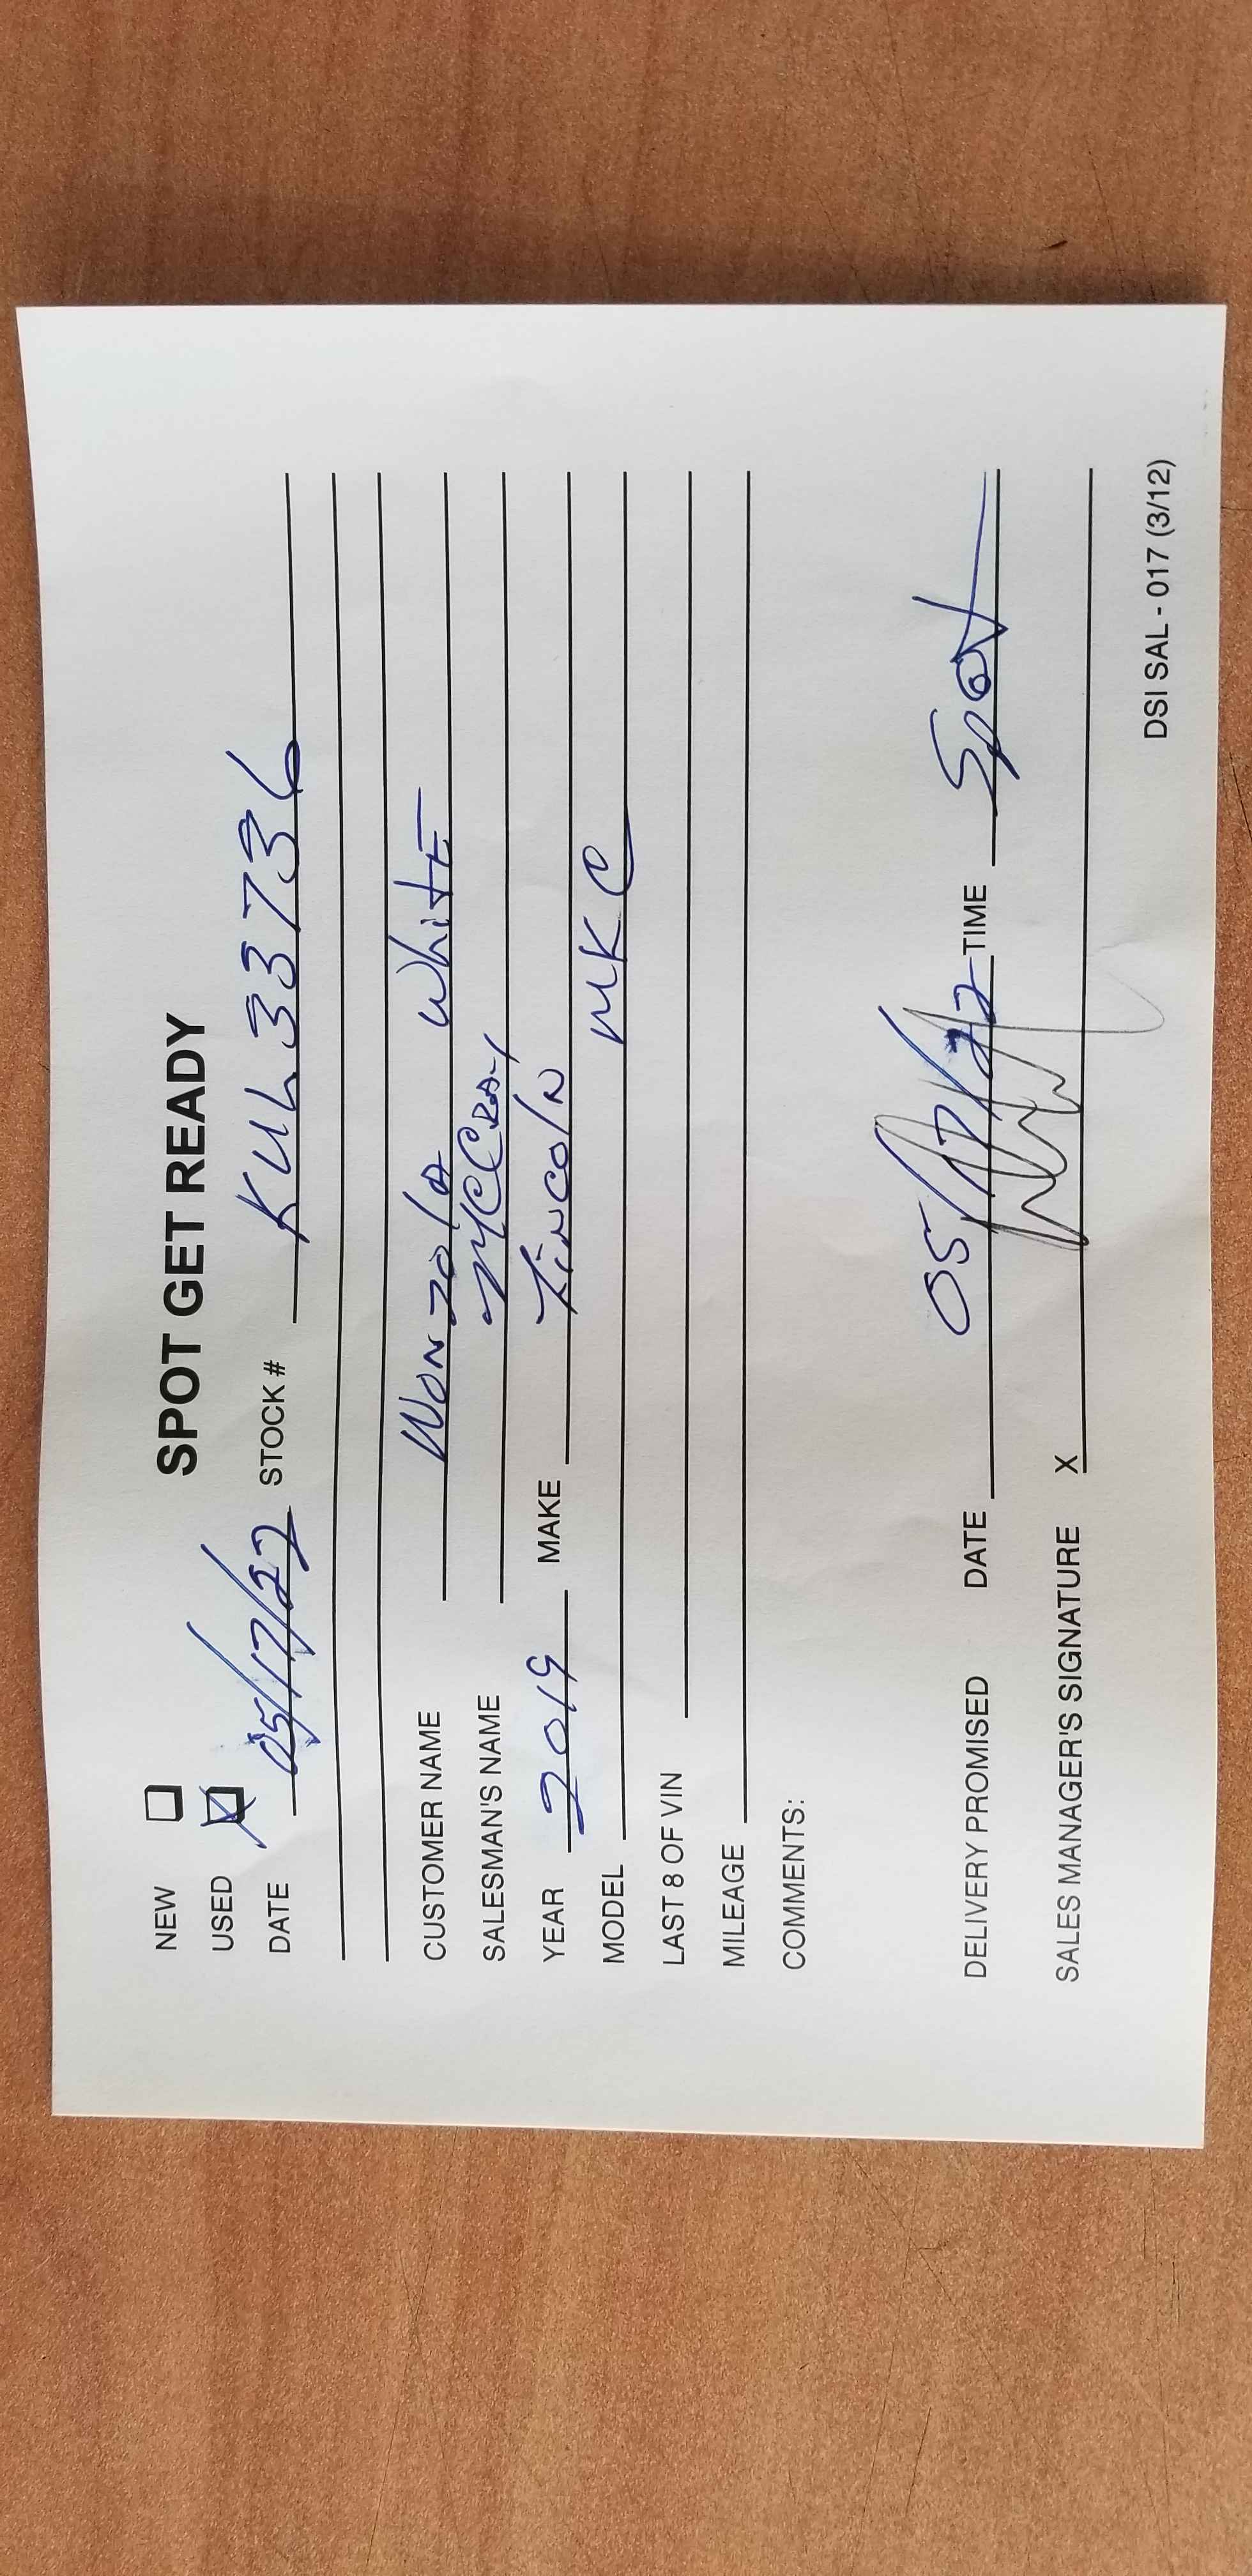 SPOT GET READY
NEW
USED X
DATE 05/17/22 STOCK # KUL33736
CUSTOMER NAME Wonzola White
SALESMAN'S NAME McCray
YEAR 2019 MAKE Lincoln
MODEL MKC
LAST 8 OF VIN
MILEAGE
COMMENTS:
DELIVERY PROMISED DATE 05/17/22 TIME Spot
SALES MANAGER'S SIGNATURE X
DSI SAL - 017 (3/12)